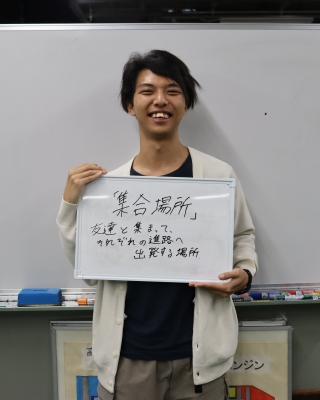 「集合場所」
友達と集まって、
それぞれの進路へ
出発する場所
ンジン